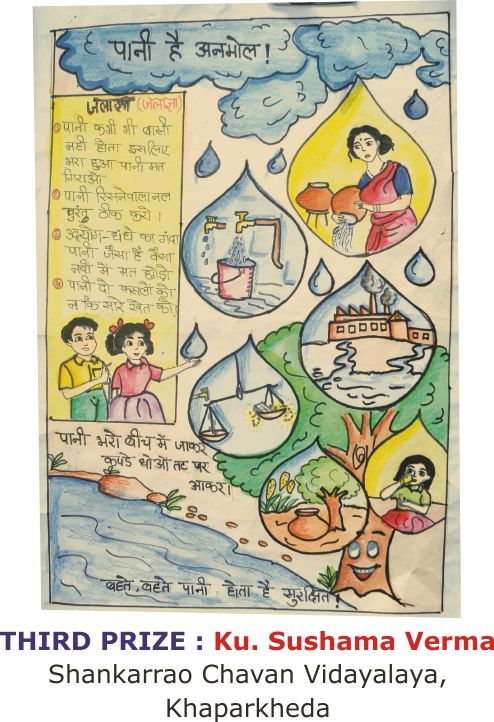 पानी है अनमोल!
जलाज्ञा (जलाज्ञा)
① पानी कभी भी बासी
नही होता इसलिए
भरा हुआ पानी मत
गिराओ
② पानी रिसनेवाला नल
तुरंत ठीक करो।
③ उद्योग-धंधे का गंदा
पानी जैसा है वैसा
नदी में मत छोड़ो
④ पानी दो फसलों को
न कि सारे खेत को।
पानी भरो बीच में जाकर
कपडे धोओं तट पर
आकर।
बहते, बहते पानी होता है सुरक्षित!
THIRD PRIZE : Ku. Sushama Verma
Shankarrao Chavan Vidayalaya,
Khaparkheda